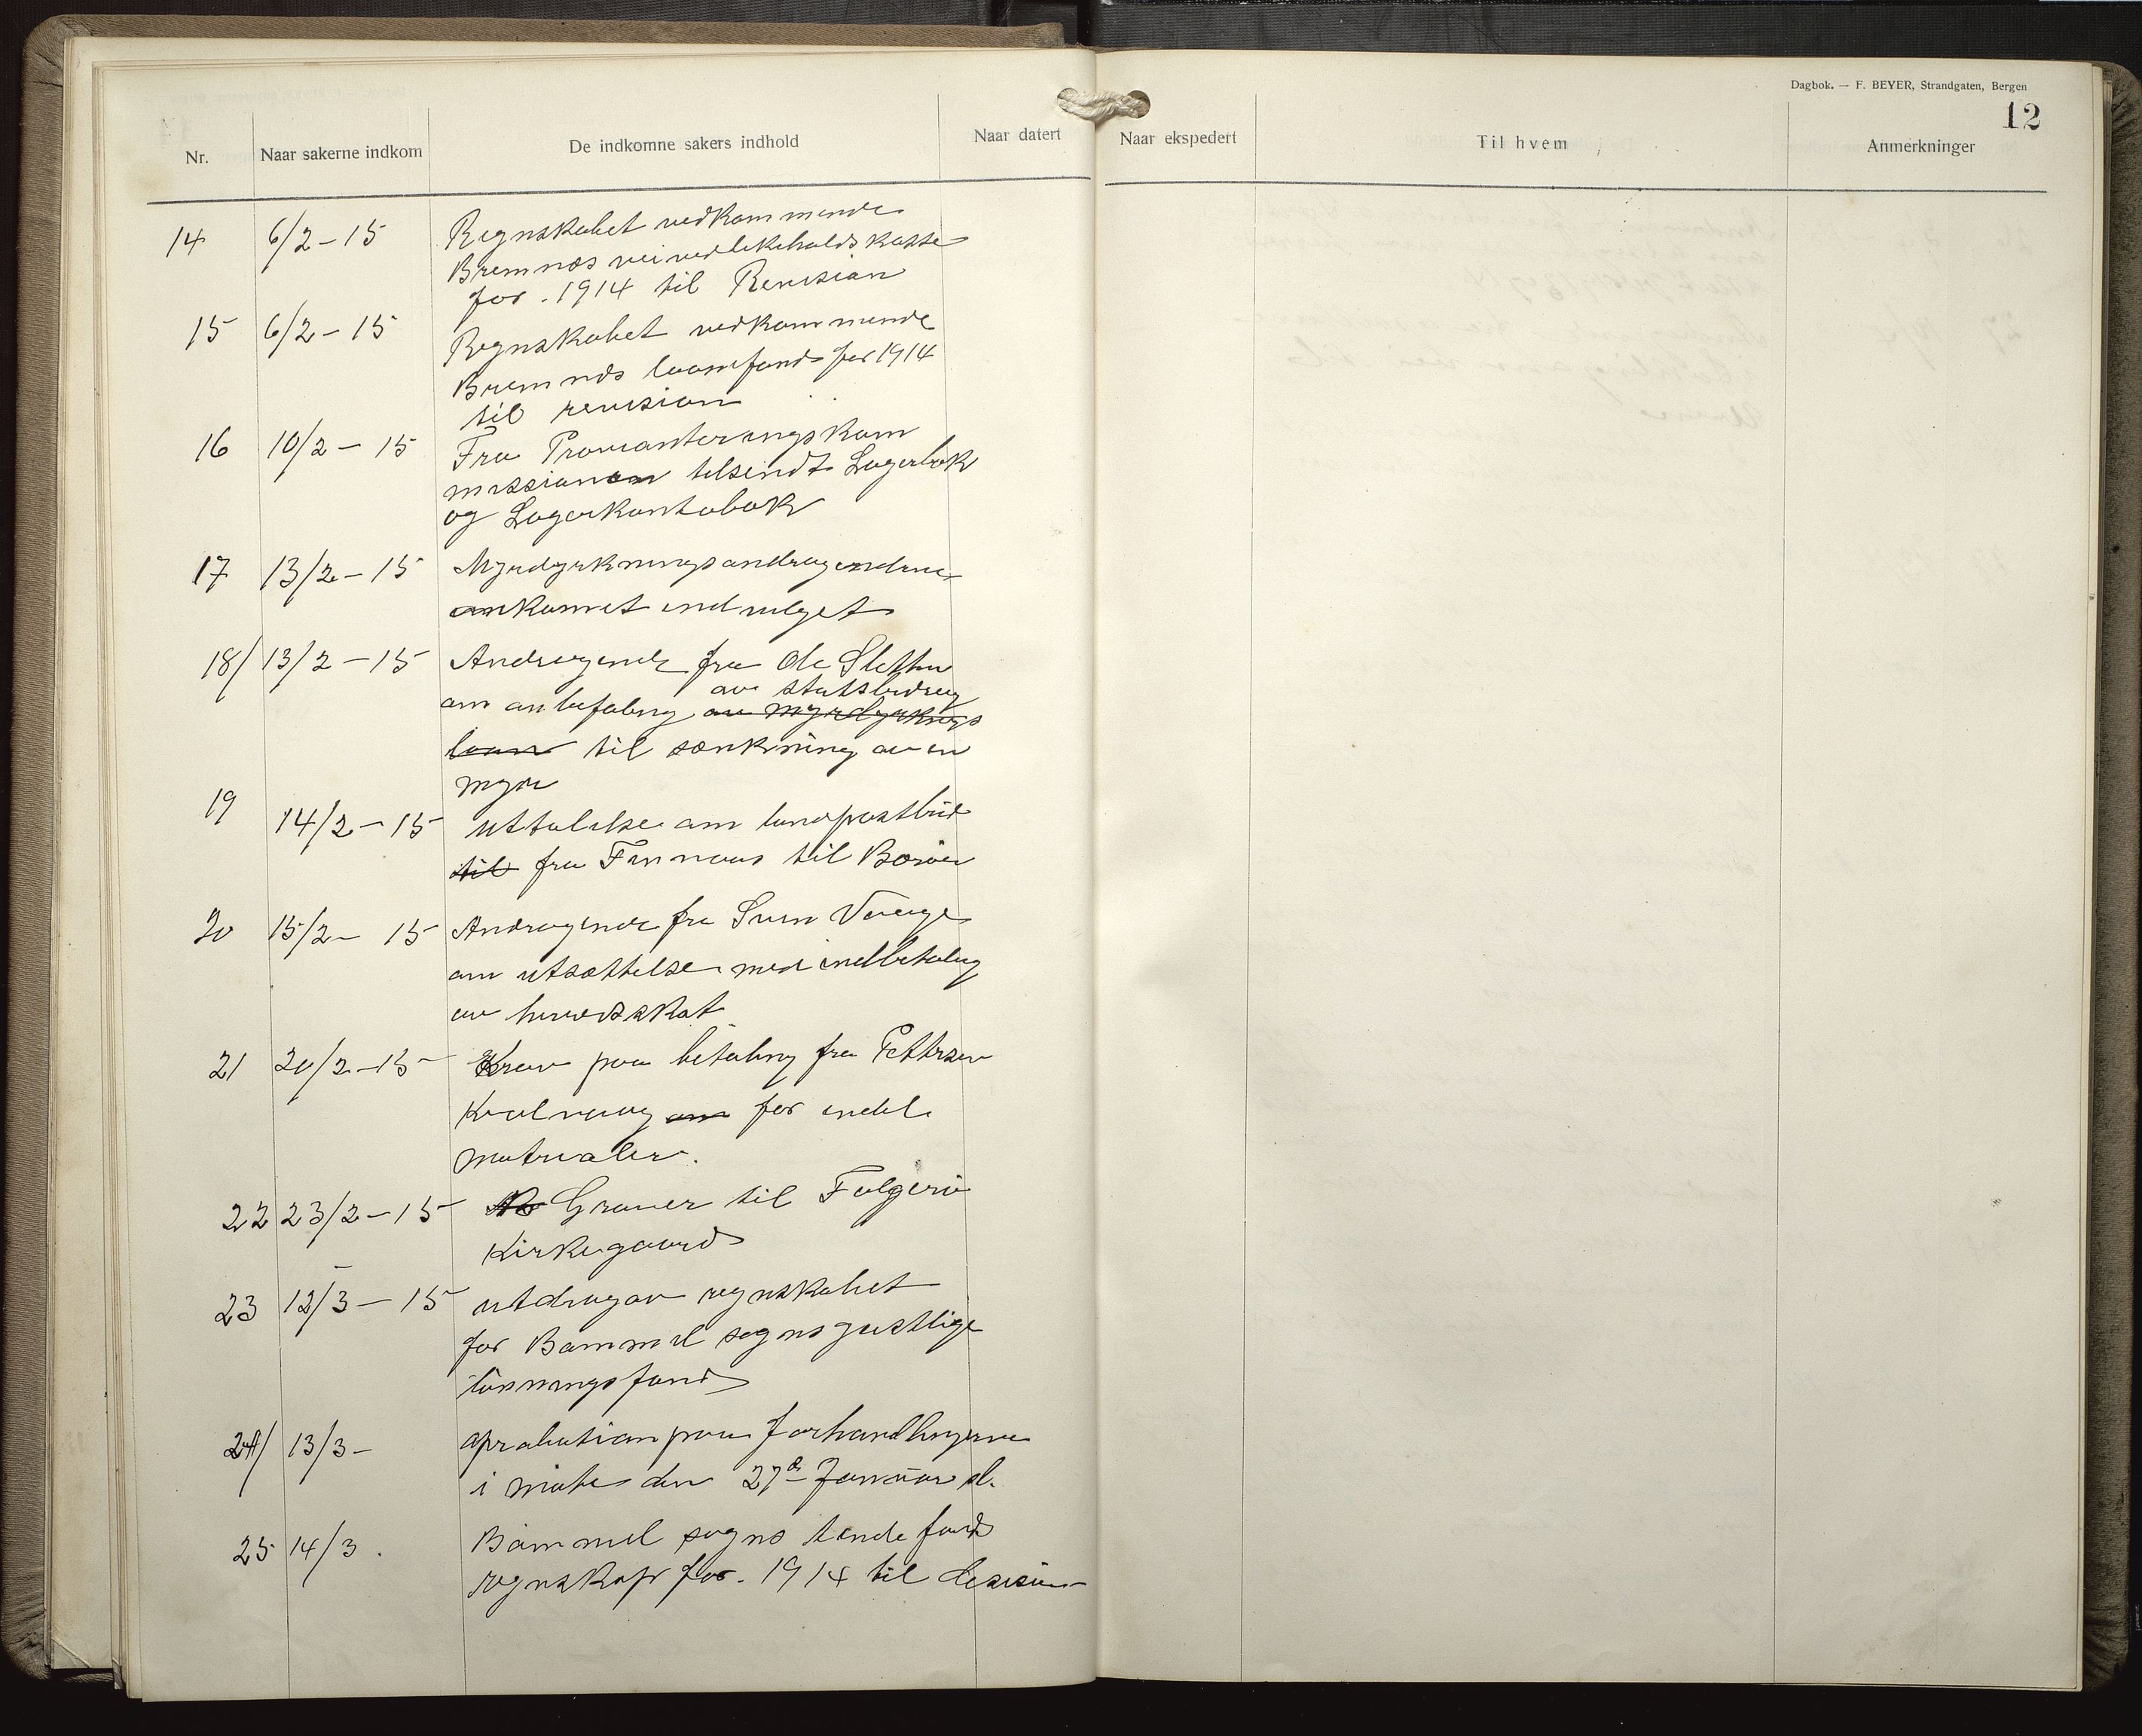 Dagbok. — F. BEYER, Strandgaten, Bergen
12
Nr. Naar sakerne indkom De indkomne sakers indhold Naar datert Naar ekspedert Til hvem Anmerkninger
14 6/2 - 15 Regnskabet vedkommende
Bremnes veivedlikeholdskasse
for . 1914 til Revision
15 6/2 - 15 Regnskabet vedkommende
Bremnes laanefond for 1914
til revision
16 10/2 - 15 Fra Provianteringskom
missionen tilsendt Lagerbok
og Lagerkontobok
17 13/2 - 15 Myrdyrkningsandragendene
ankomet indvilget
18/ 13/2 - 15 Andragende fra Ole Sletten
av statsbidrag
om anbefaling av myrdyrknigs
laan til sænkning av en
myr
19 14/2 - 15 uttalelse om landpostbud
til fra Finnaas til
20 15/2 - 15 Andragende fra Sven Vaage
om utsættelse med indbetaling
av herredsskat
21 20/2 - 15 Krav paa betaling fra Pettersen
Kulvaag om for endel
matrialer.
22 23/2 - 15 Graver til Folgerö
Kirkegaard
23 12/3 - 15 utdrag av regnskabet
for Bømmel sogns geistlige
lönningsfond
24/ 13/3 - aprobation paa forhandlingerne
i møte den 27de Januar d.
25 14/3 . Bömmel sogns tiende fond
regnskap for . 1914 til desision